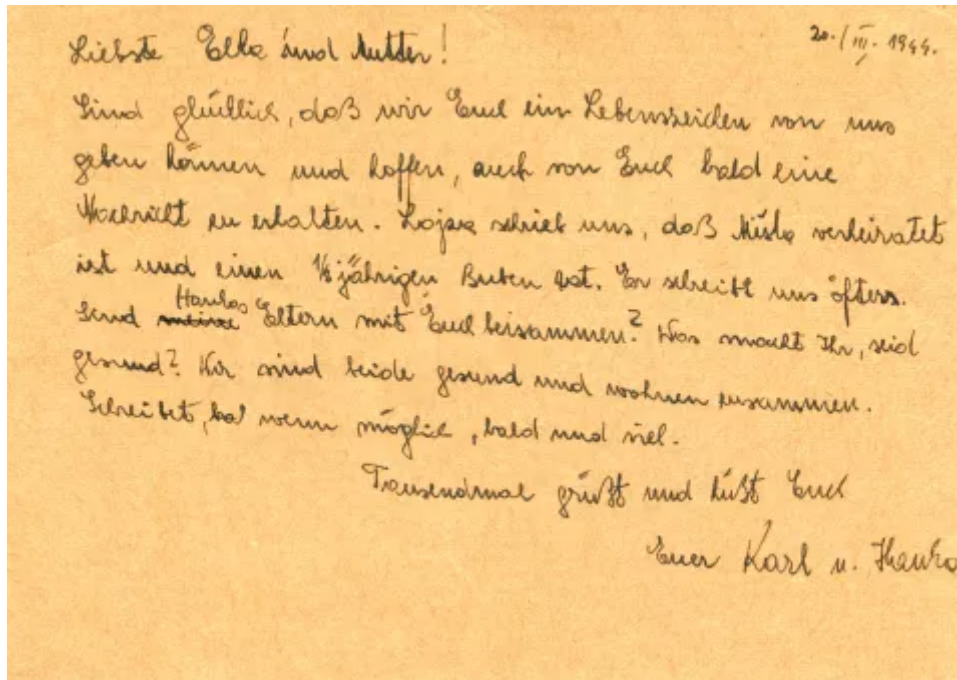 20./III. 1944.
Liebste Elka und Mutter!
Sind glücklich, daß wir Euch ein Lebenszeichen von uns
geben können und hoffen, auch von Euch bald eine
Nachricht zu erhalten. Lojza schrieb uns, daß Miša verheiratet
ist und einen ½ jährigen Buben hat. Er schreibt uns öfters.
Hankas
Send meine Eltern mit Euch beisammen? Was macht Ihr, seid
gesund? Wir sind beide gesund und wohnen zusammen.
Schreibet, wenn möglich, bald und viel.
Tausendmal grüßt und küßt Euch
Euer Karl u. Hanka